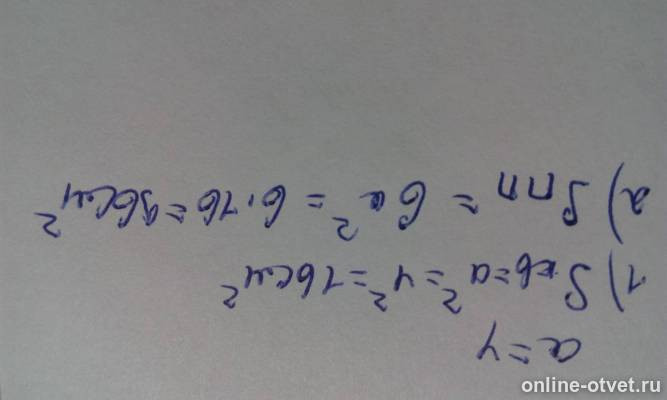 a=4
1) Sкв=a²=4²=16см²
2) Sпп = 6a² = 6·16=96см²
online-otvet.ru